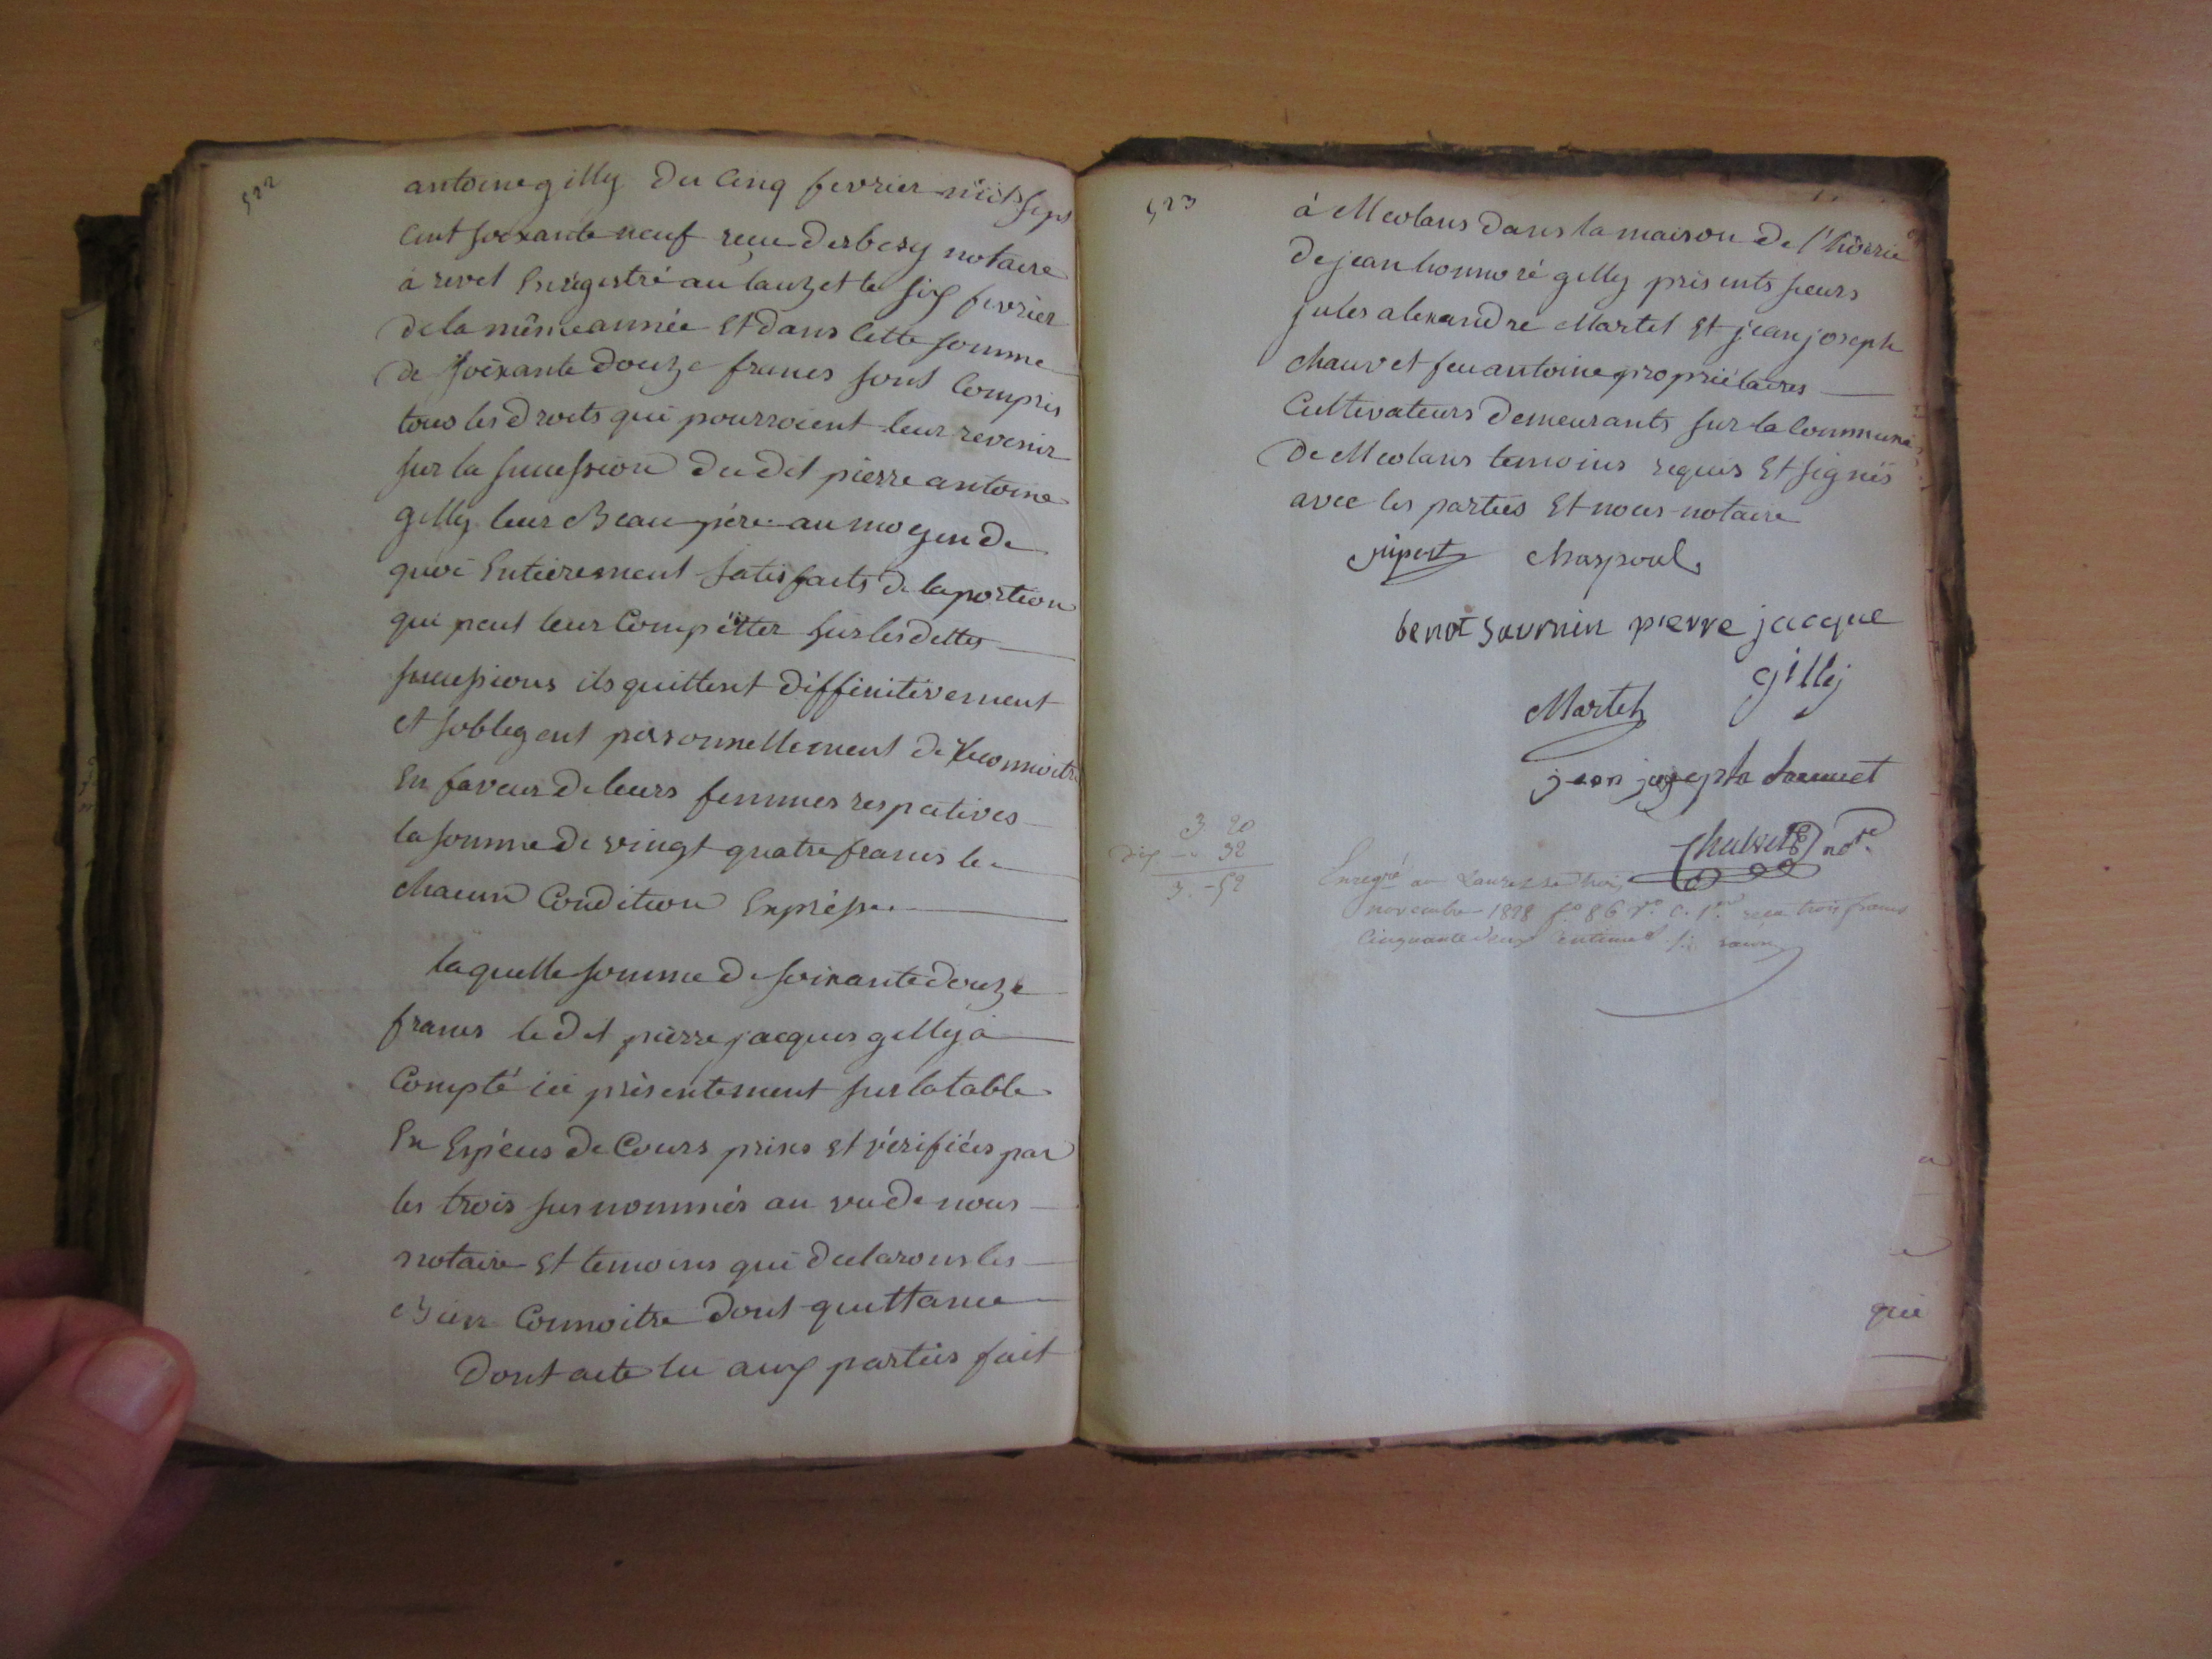 522
antoine gilly du cinq fevrier mil sept
cent soixante neuf reçue derbesy notaire
a revel Enregistré au lauzet le six fevrier
de la même année Et dans cette somme
de soixante douze francs sont compris
tous les droits qui pourroient leur revenir
sur la succession du dit pierre antoine
gilly leur Beau père au moyen de
quoi Entierement satisfaits de la portion
qui peut leur Compètter sur les dettes
successions ils quittent diffinitivement
et soblegent personnellement de reconnoitre
En faveur de leurs femmes respectives
la somme de vingt quatre francs le
chacun Condition Expresse.
laquelle somme de soixante douze
francs le dit pierre jacques gilly à
Compté ici présentement sur la table
En Espéces de Cours prises Et vérifiées par
les trois sus nommés au vu de nous
notaire Et temoins qui declarons les
Bien Connoitre dont quittance
Dont acte lu aux parties fait
523
à Meolans dans la maison de l'hoerie
de jean honnoré gilly présents sieurs
jules alexandre Martel Et jean joseph
chauvet feu antoine propriétaires
Cultivateurs demeurants sur la Commune
de Meolans temoins requis Et signés
avec les parties Et nous notaire
jupert Chaspoul
benot Savrnin pierre jacque
gilly
Martel
jean joseph chauvet
Chauvet nore
3 20
dix - 32
3. - 52
Enregré au Lauzet le trois
novembre 1828 fo 86 ro c. 1ere recu trois francs
Cinquante deux centimes
que